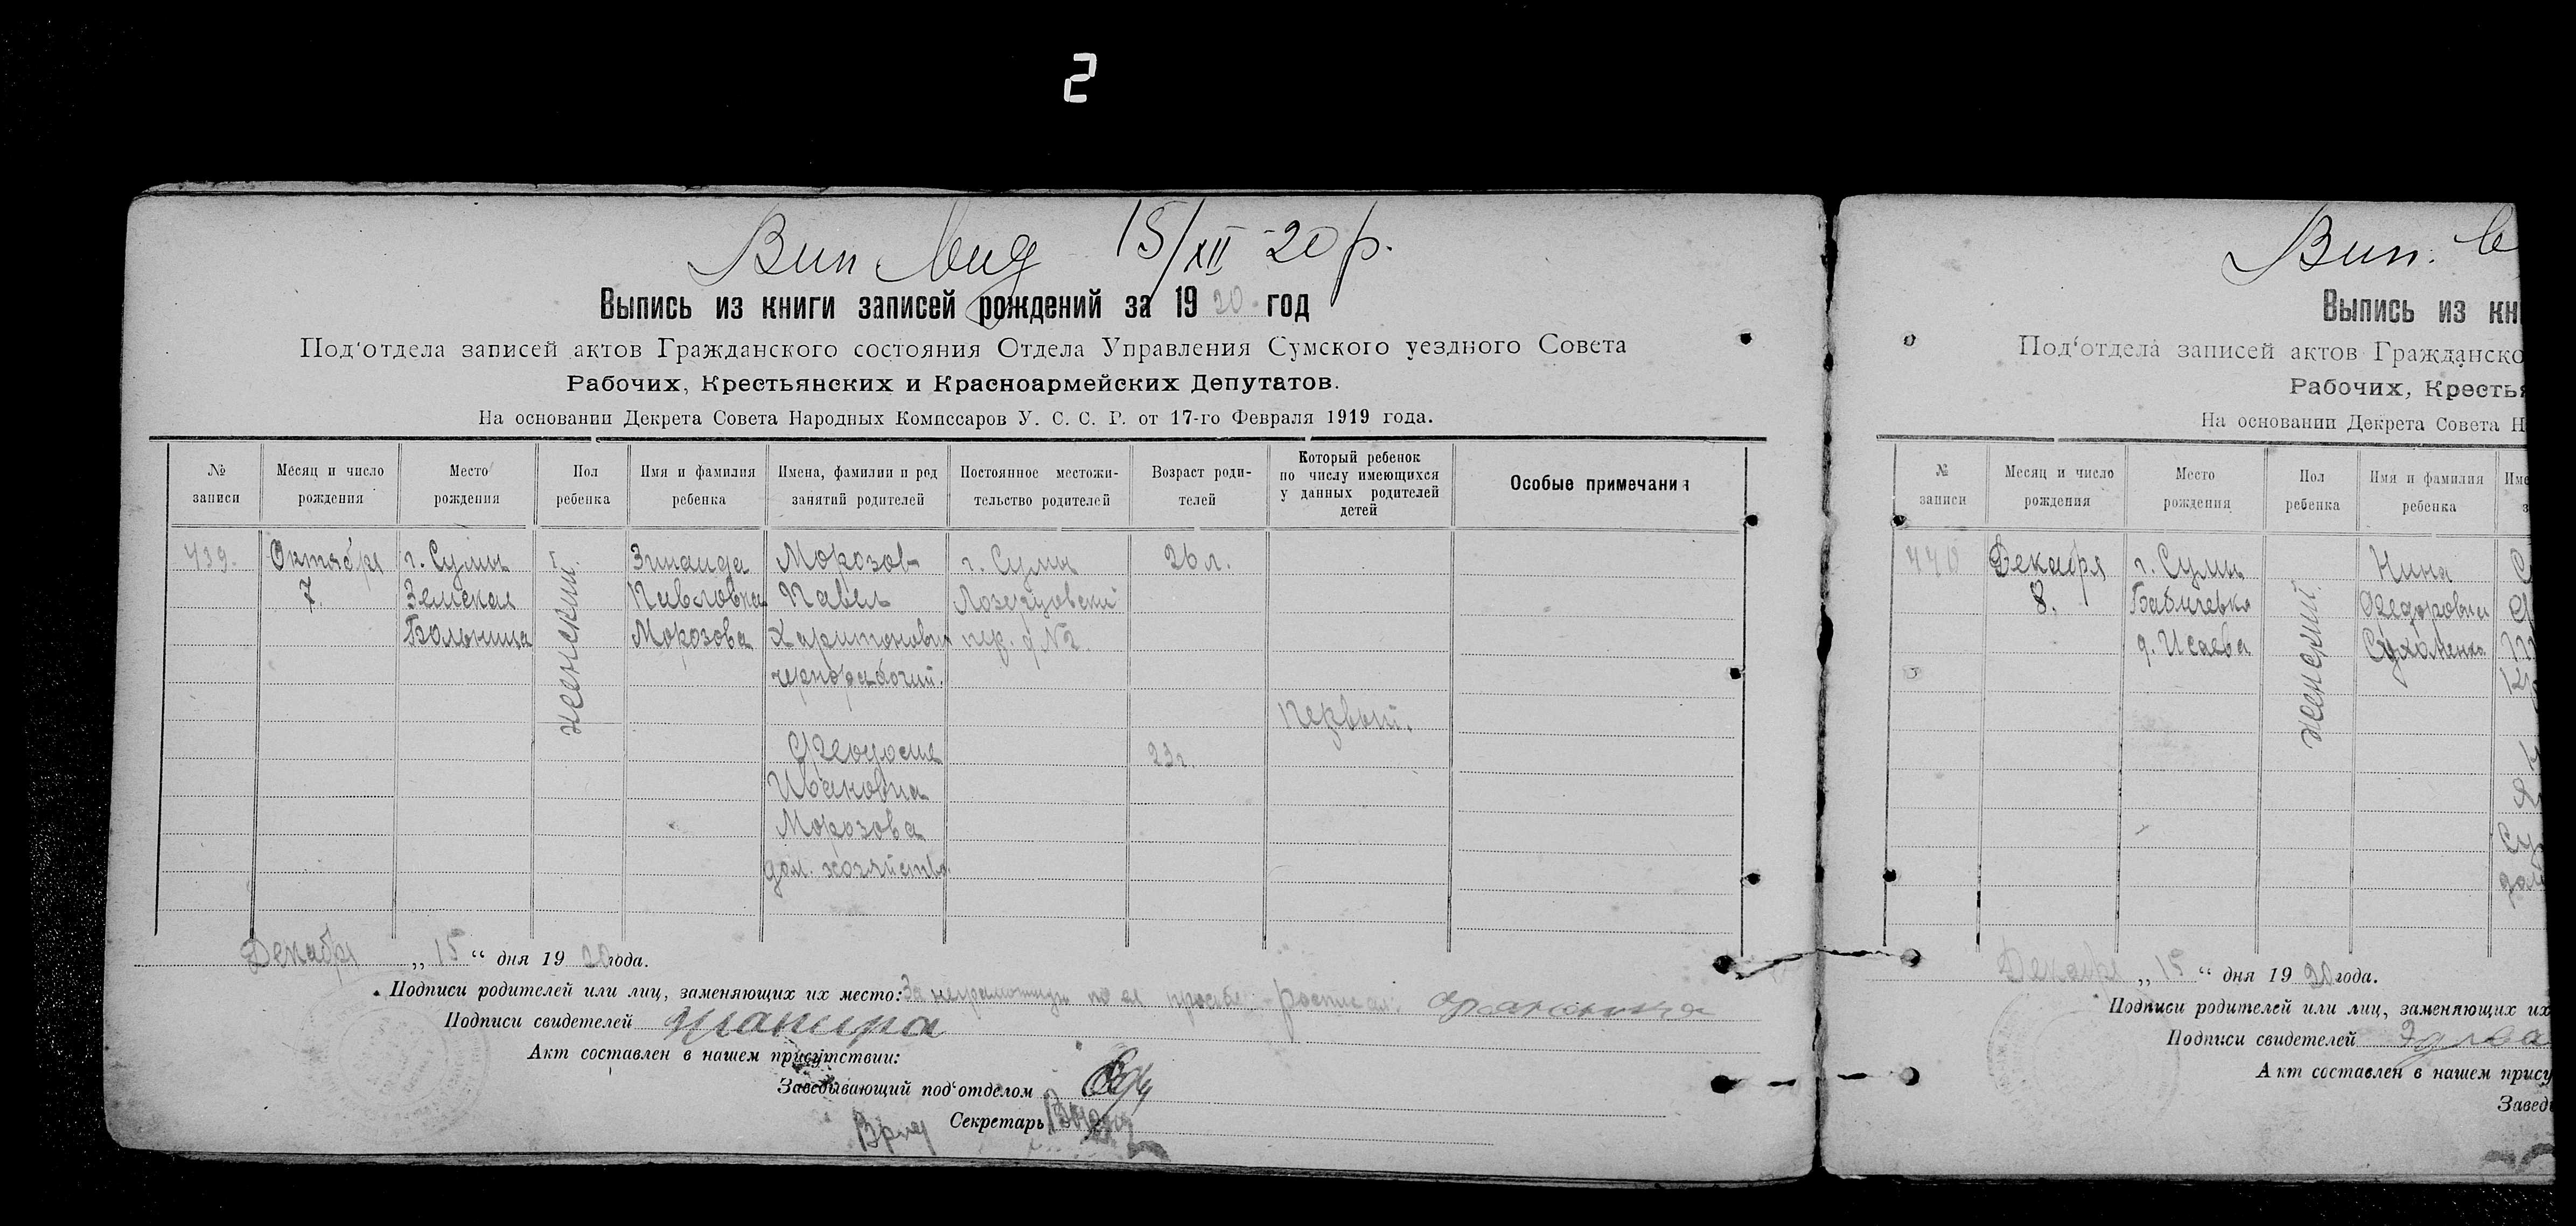 2
Вип вид 15/XII 20 р.
Выпись из книги записей рождений за 1920 год
Под‘отдела записей актов Гражданского состояния Отдела Управления Сумского уездного Совета
Рабочих, Крестьянских и Красноармейских Депутатов.
На основании Декрета Совета Народных Комиссаров У. С. С. Р. от 17-го Февраля 1919 года.
№ записи
Месяц и число рождения
Место рождения
Пол ребенка
Имя и фамилия ребенка
Имена, фамилии и род занятий родителей
Постоянное местожительство родителей
Возраст родителей
Который ребенок по числу имеющихся у данных родителей детей
Особые примечания
439.
Октября
7.
г. Сумы
Земская
Больница
женский.
Зинаида
Павловна
Морозова
Морозов
Павел
Харитонович
чернорабочий.
Феодосия
Ивановна
Морозова
дом. хозяйство.
г. Сумы
пер. д №2.
26 л.
23 г.
Первый.
Декабря „ 15 “ дня 1920 года.
Подписи родителей или лиц, заменяющих их место: За неграмотную по ее просьбе расписал.
Подписи свидетелей
Акт составлен в нашем присутствии:
Заведывающий под‘отделом
Врид Секретарь
Вип.
Выпись из кн
Под‘отдела записей актов Гражданско
Рабочих, Крестья
На основании Декрета Совета Н
№ записи
Месяц и число рождения
Место рождения
Пол ребенка
Имя и фамилия ребенка
Име
440
Декабря
8.
г. Сумы
Бабичевка
д. Исаева
женский.
Нина
Федоровна
Сухоменко
Декабря „ 15 “ дня 1920 года.
Подписи родителей или лиц, заменяющих их
Подписи свидетелей
Акт составлен в нашем прису
Завед